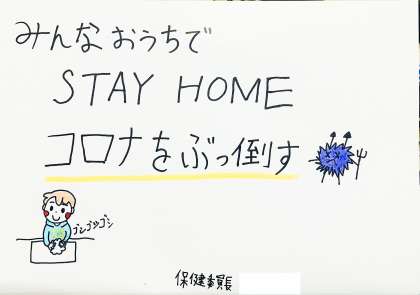 みんなおうちで
STAY HOME
コロナをぶっ倒す
ゴシゴシゴシ
保健委員長